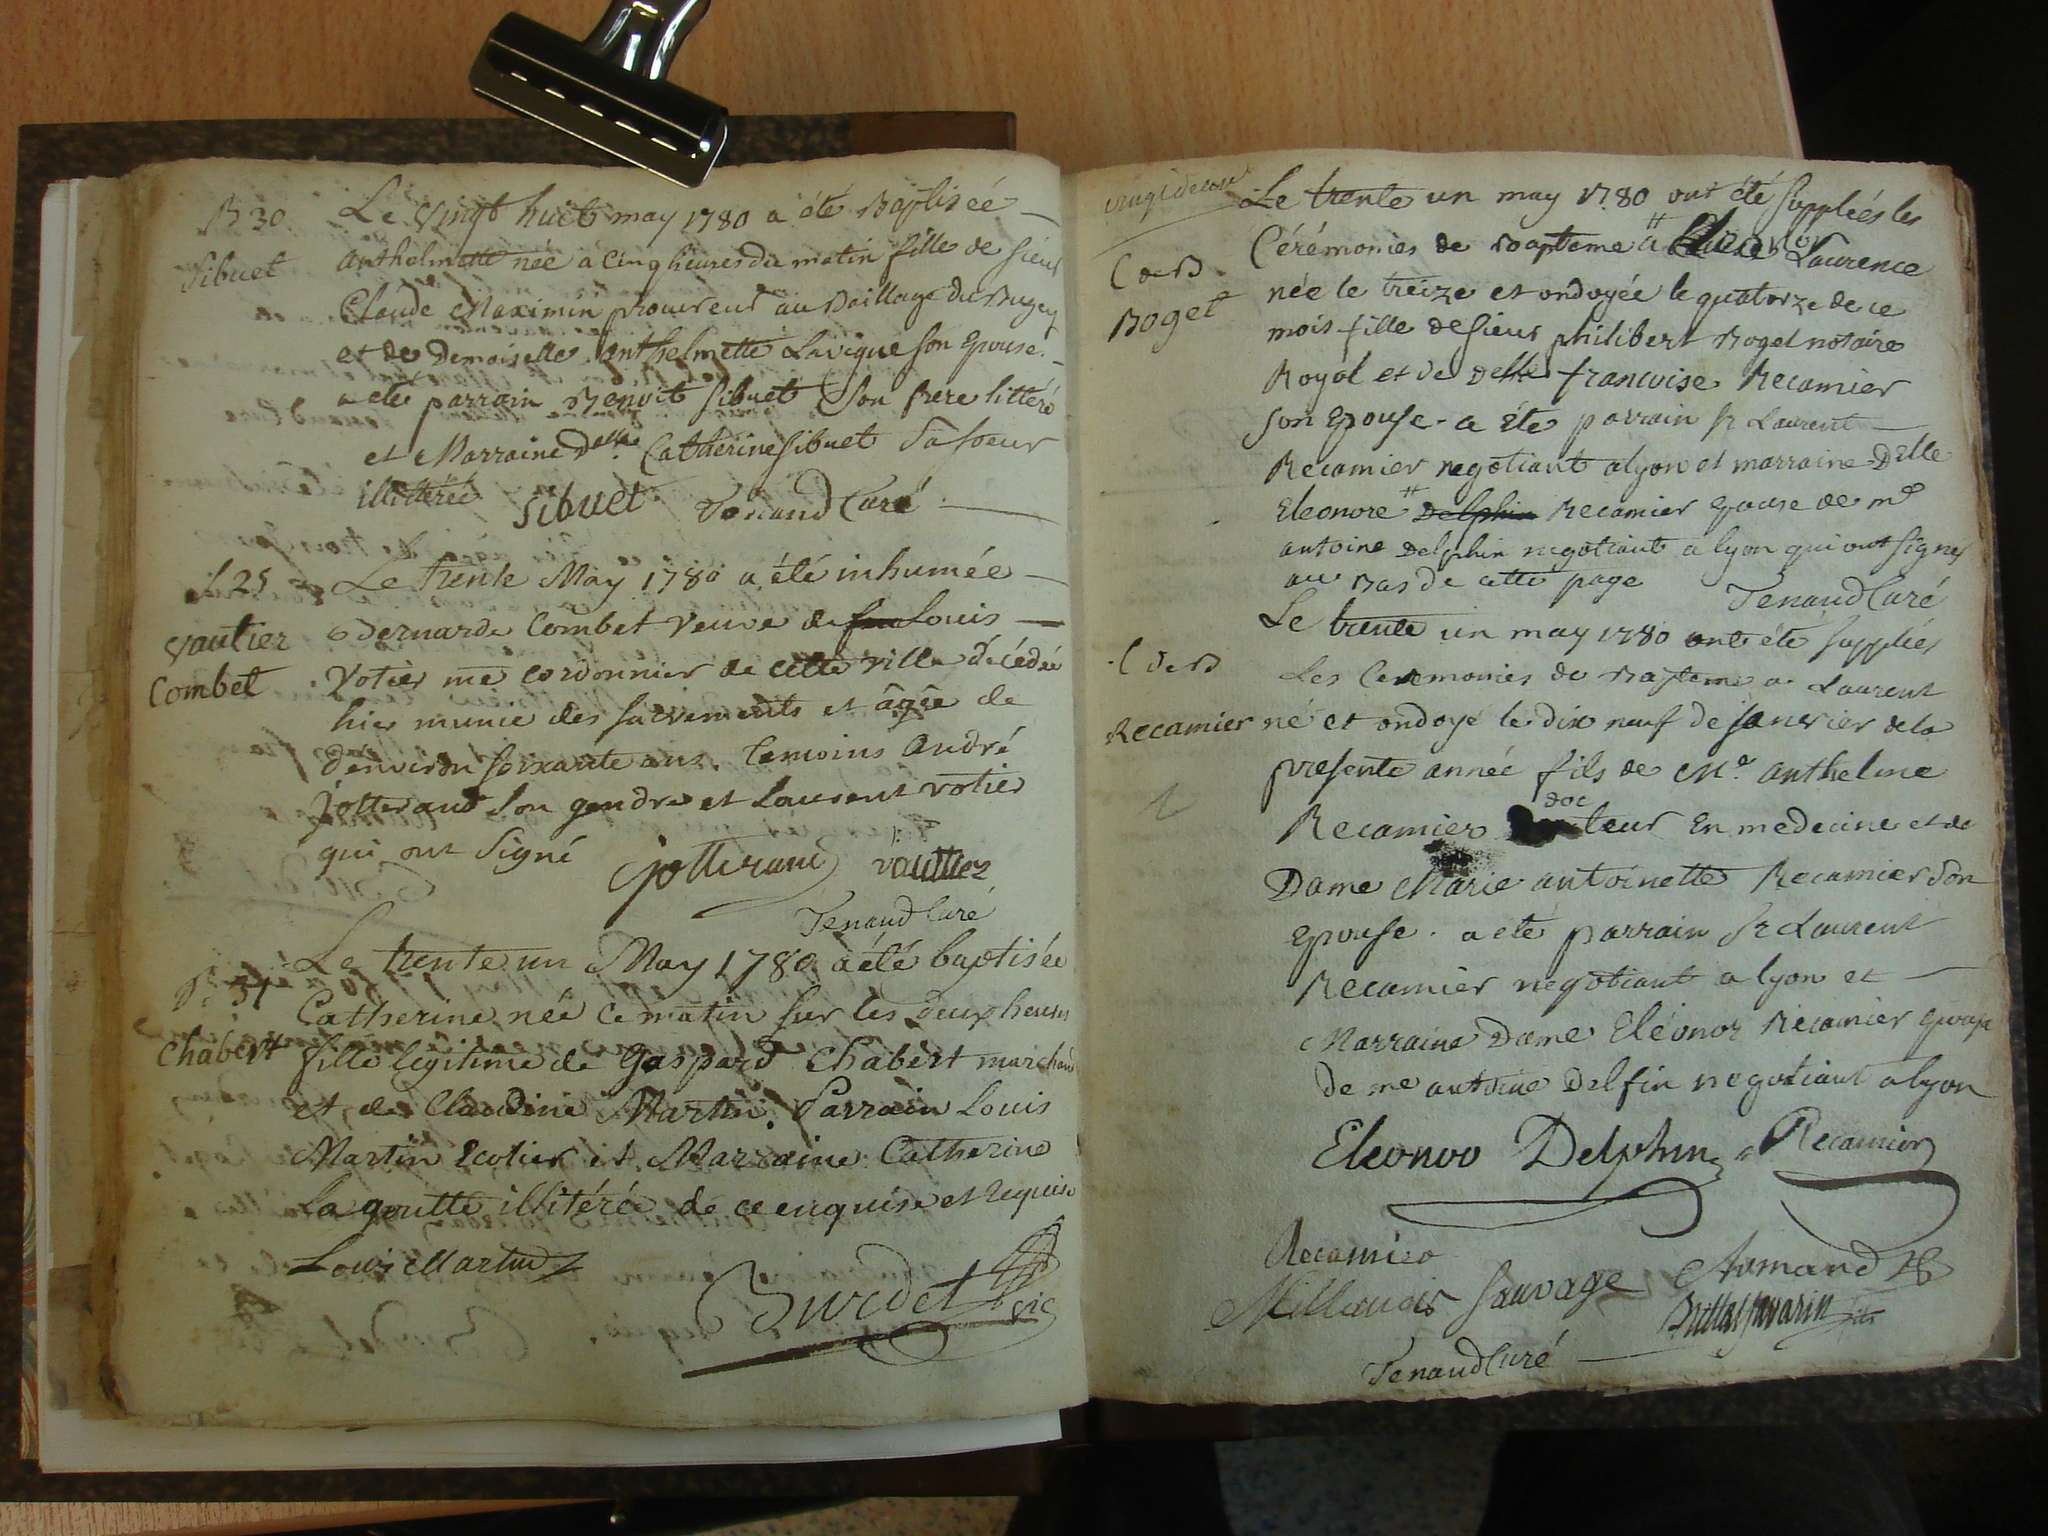 B 30.
Sibuet
Le vingt huit may 1780 a été Baptisée
anthelmette née a cinq heures du matin fille de sieur
Claude Maximin procureur au Baillage du Bugey
et de Demoiselle anthelmette Lavigne son Epouse.
a été parrain Benoit Sibuet son frere littéré
et Marraine Delle Catherine Sibuet sa soeur
illitterée Sibuet Tenand Curé
S 25
Vautier
Combet
Le trente May 1780 a été inhumée
Bernarde Combet veuve de feu Louis
Votier me cordonnier de cette ville décédée
hier munie des sacrements et âgée de
d'environ soixante ans. temoins André
jotterand son gendre et Laurent votier
qui ont signé jotterand vauttier
Tenand Curé
B. 31
Chabert
Le trente un May 1780 a été baptisée
Catherine née ce matin sur les deux heures
fille legitime de Gaspard Chabert marchand
et de Claudine Martin. Parrain Louis
Martin Ecolier et Marraine Catherine
la goutte illitérée de ce enquise et requise
Louis Martin
Burdet vic
vingt deux
C de B
Boget
Le trente un may 1780 ont été suppléés les
Cérémonies de Bapteme a Laurence
née le treize et ondoyée le quatorze de ce
mois fille de sieur philibert Boget notaire
Royal et de Delle francoise Recamier
son Epouse. a été parrain Sr Laurent
Recamier negotiant a lyon et marraine Delle
Eleonore Delphin Recamier Epouse de me
antoine Delphin negotiant a lyon qui ont signes
au Bas de cette page Tenand Curé
C de B
Recamier
Le trente un may 1780 ont été supplées
Les Ceremonies de Bapteme a Laurent
né et ondoyé le dix neuf de janvier de la
presente année fils de Me anthelme
Recamier docteur En medecine et de
Dame Marie antoinette Recamier son
Epouse. a eté parrain Sr Laurent
Recamier negotiant a lyon et
Marraine Dame Eléonor Recamier Epouse
de me antoine Delfin negotiant a lyon
Eleonoo Delphin Recamier
Recamier
Millanois Sauvage Armand
Brillat savarin
Tenand Curé